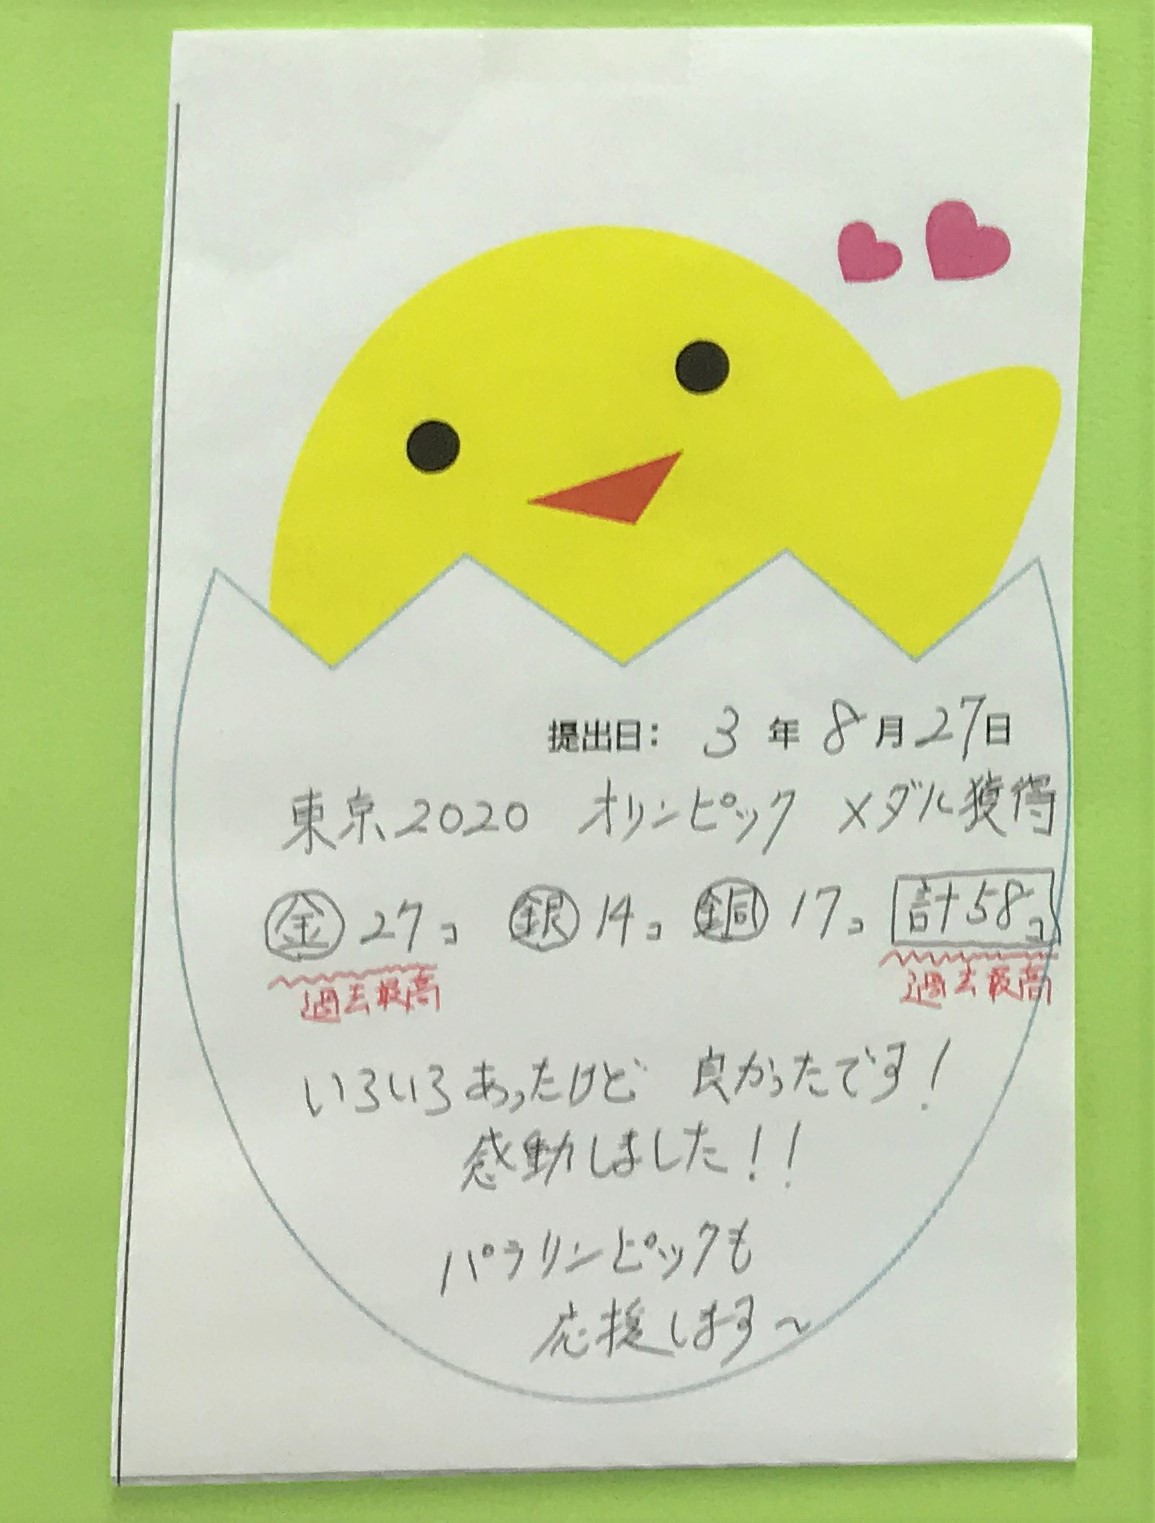 提出日: 3年8月27日
東京2020 オリンピック メダル獲得
金 27コ 銀 14コ 銅 17コ 計58コ
過去最高 過去最高
いろいろあったけど 良かったです!
感動しました!!
パラリンピックも
応援します~